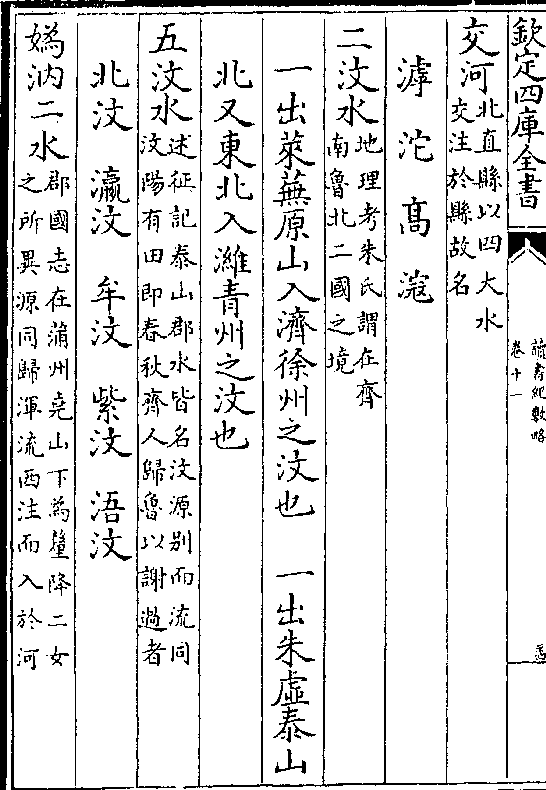 欽定四庫全書
讀書紀數略
卷十一
交河北直縣以四大水
交注於縣故名
滹沱 高㴃
二汶水地理考朱氏謂在齊
南魯北二國之境
一出萊蕪原山入濟徐州之汶也 一出朱虛泰山
北又東北入濰青州之汶也
五汶水述征記泰山郡水皆名汶源別而流同
汶陽有田即春秋齊人歸魯以謝過者
北汶 瀛汶 牟汶 紫汶 浯汶
媯汭二水郡國志在蒲州堯山下為釐降二女
之所異源同歸渾流西注而入於河